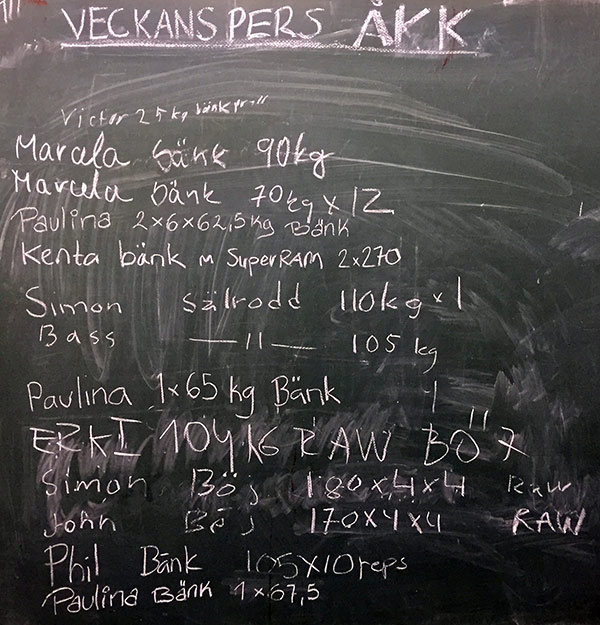 VECKANS PERS ÅKK
Victor 25 kg bänkpr
Marcela bänk 90kg
Marcela bänk 70kg x 12
Paulina 2x6x62,5kg Bänk
Kenta bänk m SuperRAM 2x270
Simon sälrodd 110kg x 1
Bass —11— 105 kg
Paulina 1x65 kg Bänk
ERKI 104KG RAW BÖJ
Simon Böj 180x4x4 Raw
John Böj 170x4x4 RAW
Phil Bänk 105x10 reps
Paulina Bänk 1x67,5